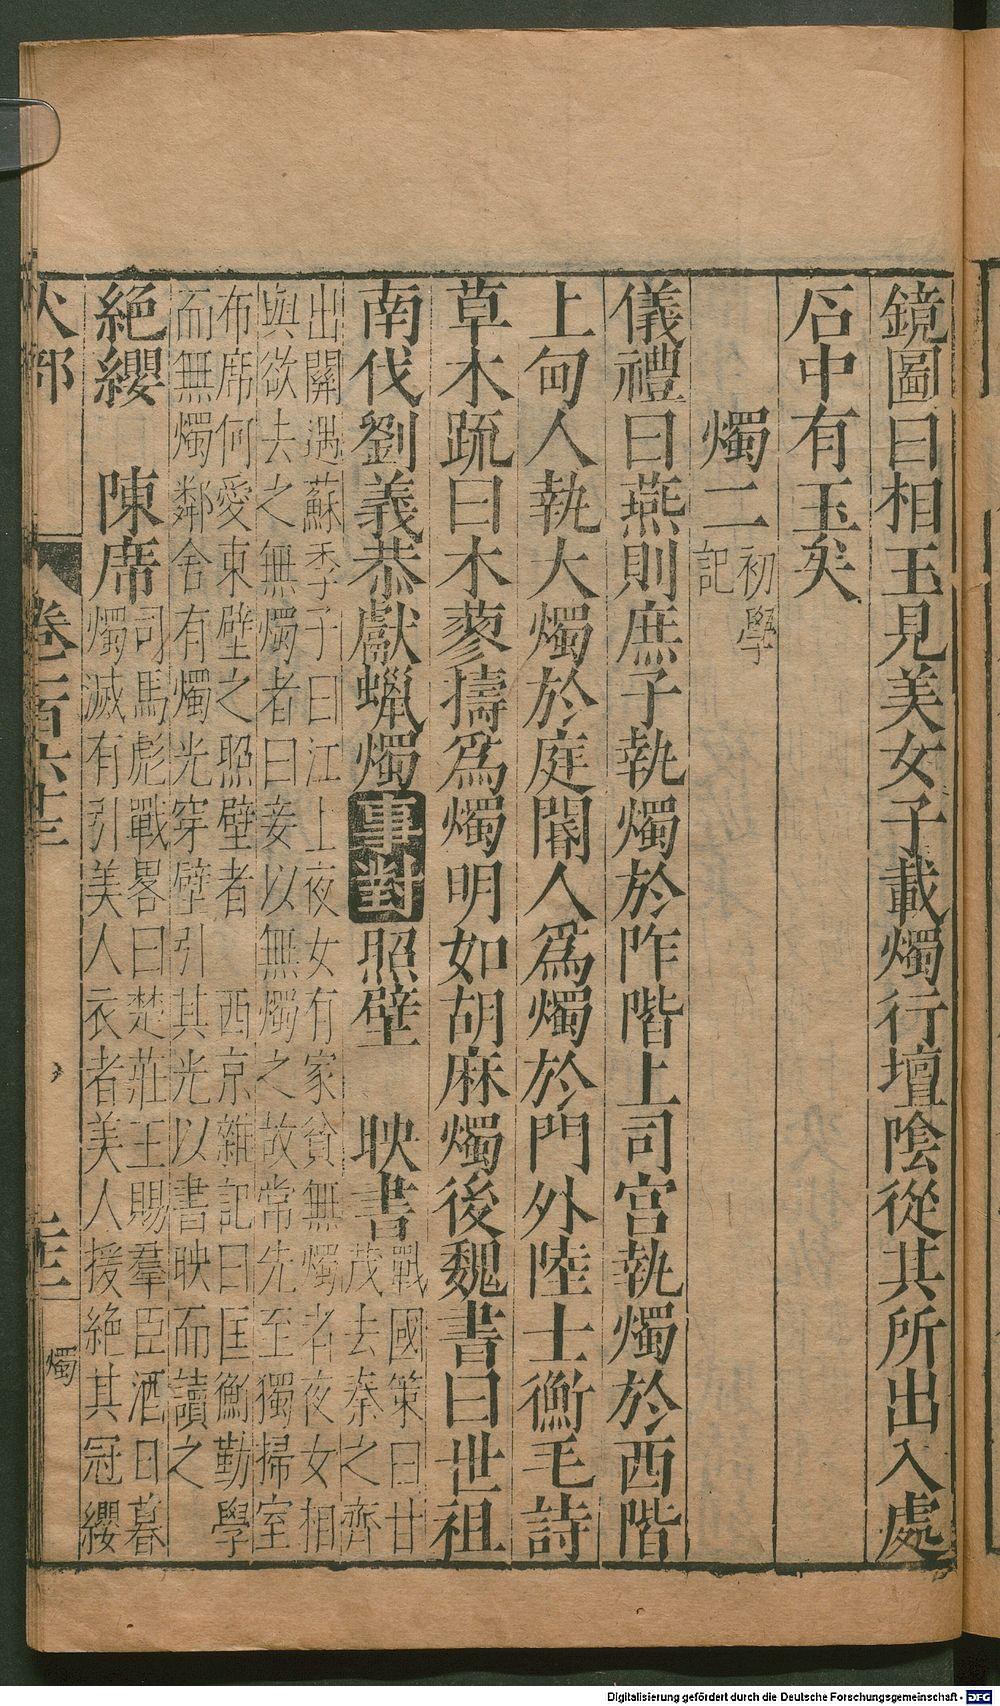 鏡圖曰相玉見美女子載燭行壇陰從其所出入處
石中有玉矣
燭二初學記
儀禮曰燕則庶子執燭於阼階上司宮執燭於西階
上甸人執大燭於庭閽人爲燭於門外陸士衡毛詩
草木疏曰木蓼擣爲燭明如胡麻燭後魏書曰世祖
南伐劉義恭獻蠟燭事對照壁　映書戰國策曰甘
茂去秦之齊
出關遇蘇季子曰江上夜女有家貧無燭者夜女相
與欲去之無燭者曰妾以無燭之故常先至獨掃室
布席何愛東壁之照壁者　西京雜記曰匡衡勤學
而無燭鄰舍有燭光穿壁引其光以書映而讀之
絕纓　陳席司馬彪戰畧曰楚莊王賜羣臣酒日暮
燭滅有引美人衣者美人援絕其冠纓
火部　卷二百六十三　二十三　燭
Digitalisierung gefördert durch die Deutsche Forschungsgemeinschaft - DFG